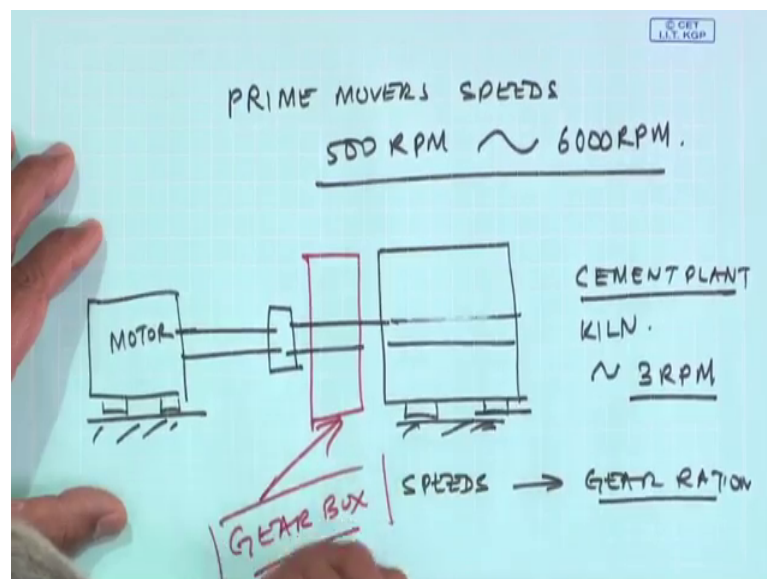 © CET
I.I.T. KGP
PRIME MOVERS SPEEDS
500 RPM ~ 6000 RPM.
MOTOR
CEMENT PLANT
KILN.
~ 3 RPM
GEAR BOX
SPEEDS → GEAR RATION